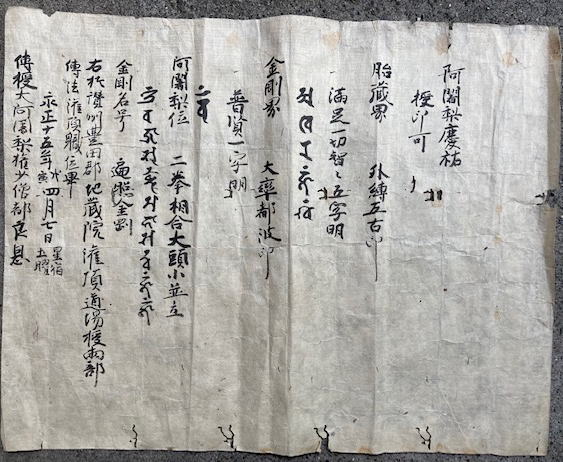 阿闍梨慶祐
授印可
胎蔵界 外縛五古印
満足一切智々五字明
金剛界 大率都波印
普賢一字明
阿闍梨位 二拳相合大頭小並立
金剛名号 遍照金剛
右於讃州豊田郡地蔵院灌頂道場授両部
傳法灌頂職位畢
永正十五年戊寅四月七日 星宿 土曜
傳授大阿闍梨権少僧都良